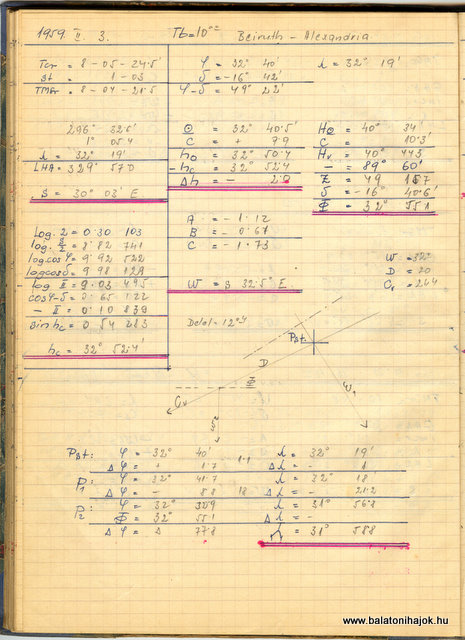 1959. II. 3. Tb=10°° Beiruth - Alexandria
Tcr = 8 - 05 - 24.5'
St = 1 - 03
TMGr = 8 - 04 - 21.5
φ = 32° 40'
δ = -16° 42'
φ-δ = 49° 22'
λ = 32° 19'
296° 32.5'
1° 05.4
λ = 32° 19'
LHA = 329° 57.0
S = 30° 03' E
⊙ = 32° 40.5'
C = + 7.9
ho = 32° 50.4
-hc = 32° 52.4
Δh = - 2.0
H⊙ = 40° 34'
C = 10.3'
Hv = 40° 44.3'
- = 89° 60'
Z = 49 15.7
δ = -16 40.6'
Φ = 32° 55.1
A = - 1.12
B = - 0.67
C = - 1.73
W = S 32.5° E
log. 2 = 0.30 103
log. S/2 = 8.82 741
log.cosφ = 9.92 522
logcosδ = 9.98 129
log II = 9.03 495
cosφ-δ = 0.65 122
- II = 0.10 839
sin hc = 0.54 283
hc = 32° 52.4'
W = 32°
D = 20
Cv = 244
Delel = 12°⁴
PBt.
D
Φ
Cv
W1
PBt: φ = 32° 40' λ = 32° 19'
Δφ = + 1.7 1.1 Δλ = - 1
P1: φ = 32° 41.7 λ = 32° 18
Δφ = - 8.8 18 Δλ = - 21.2
P2: φ = 32° 32.9 λ = 31° 56.8
Φ = 32° 55.1 Δλ = -
Δφ = Δ λ = 31° 58.8
www.balatonihajok.hu